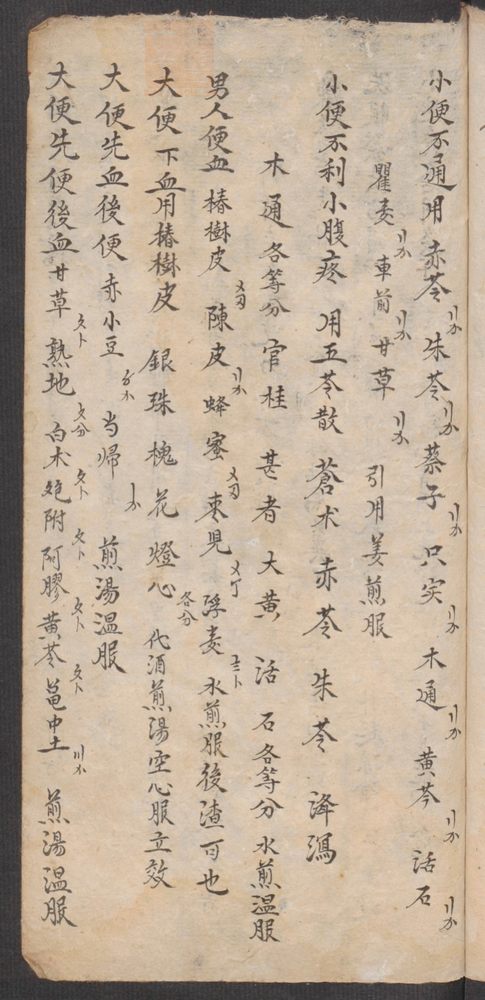 小便不通用赤苓 朱苓 蔡子 只实 木通 黄芩 活石
瞿麦 車前 甘草 引用姜煎服
小便不利小腹疼 用五苓散 蒼术 赤苓 朱苓 泽瀉
木通各等分 官桂 甚者 大黄 活石各等分 水煎温服
男人便血 椿樹皮 陳皮 蜂蜜 枣児 浮麦 水煎服後渣可也
大便下血用椿樹皮 銀珠 槐花 燈心 各分 代酒煎湯空心服立效
大便先血後便 赤小豆 当帰 煎湯温服
大便先便後血 甘草 熟地 白术 炮附 阿膠 黄芩 皂中土 煎湯温服